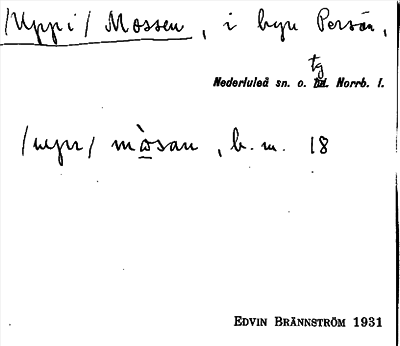 /Uppi/ Mossen, i byn Persön,
tg
Nederluleå sn. o. hd. Norrb. l.
/upi/ mòsan, b. m. 18
EDVIN BRÄNNSTRÖM 1931